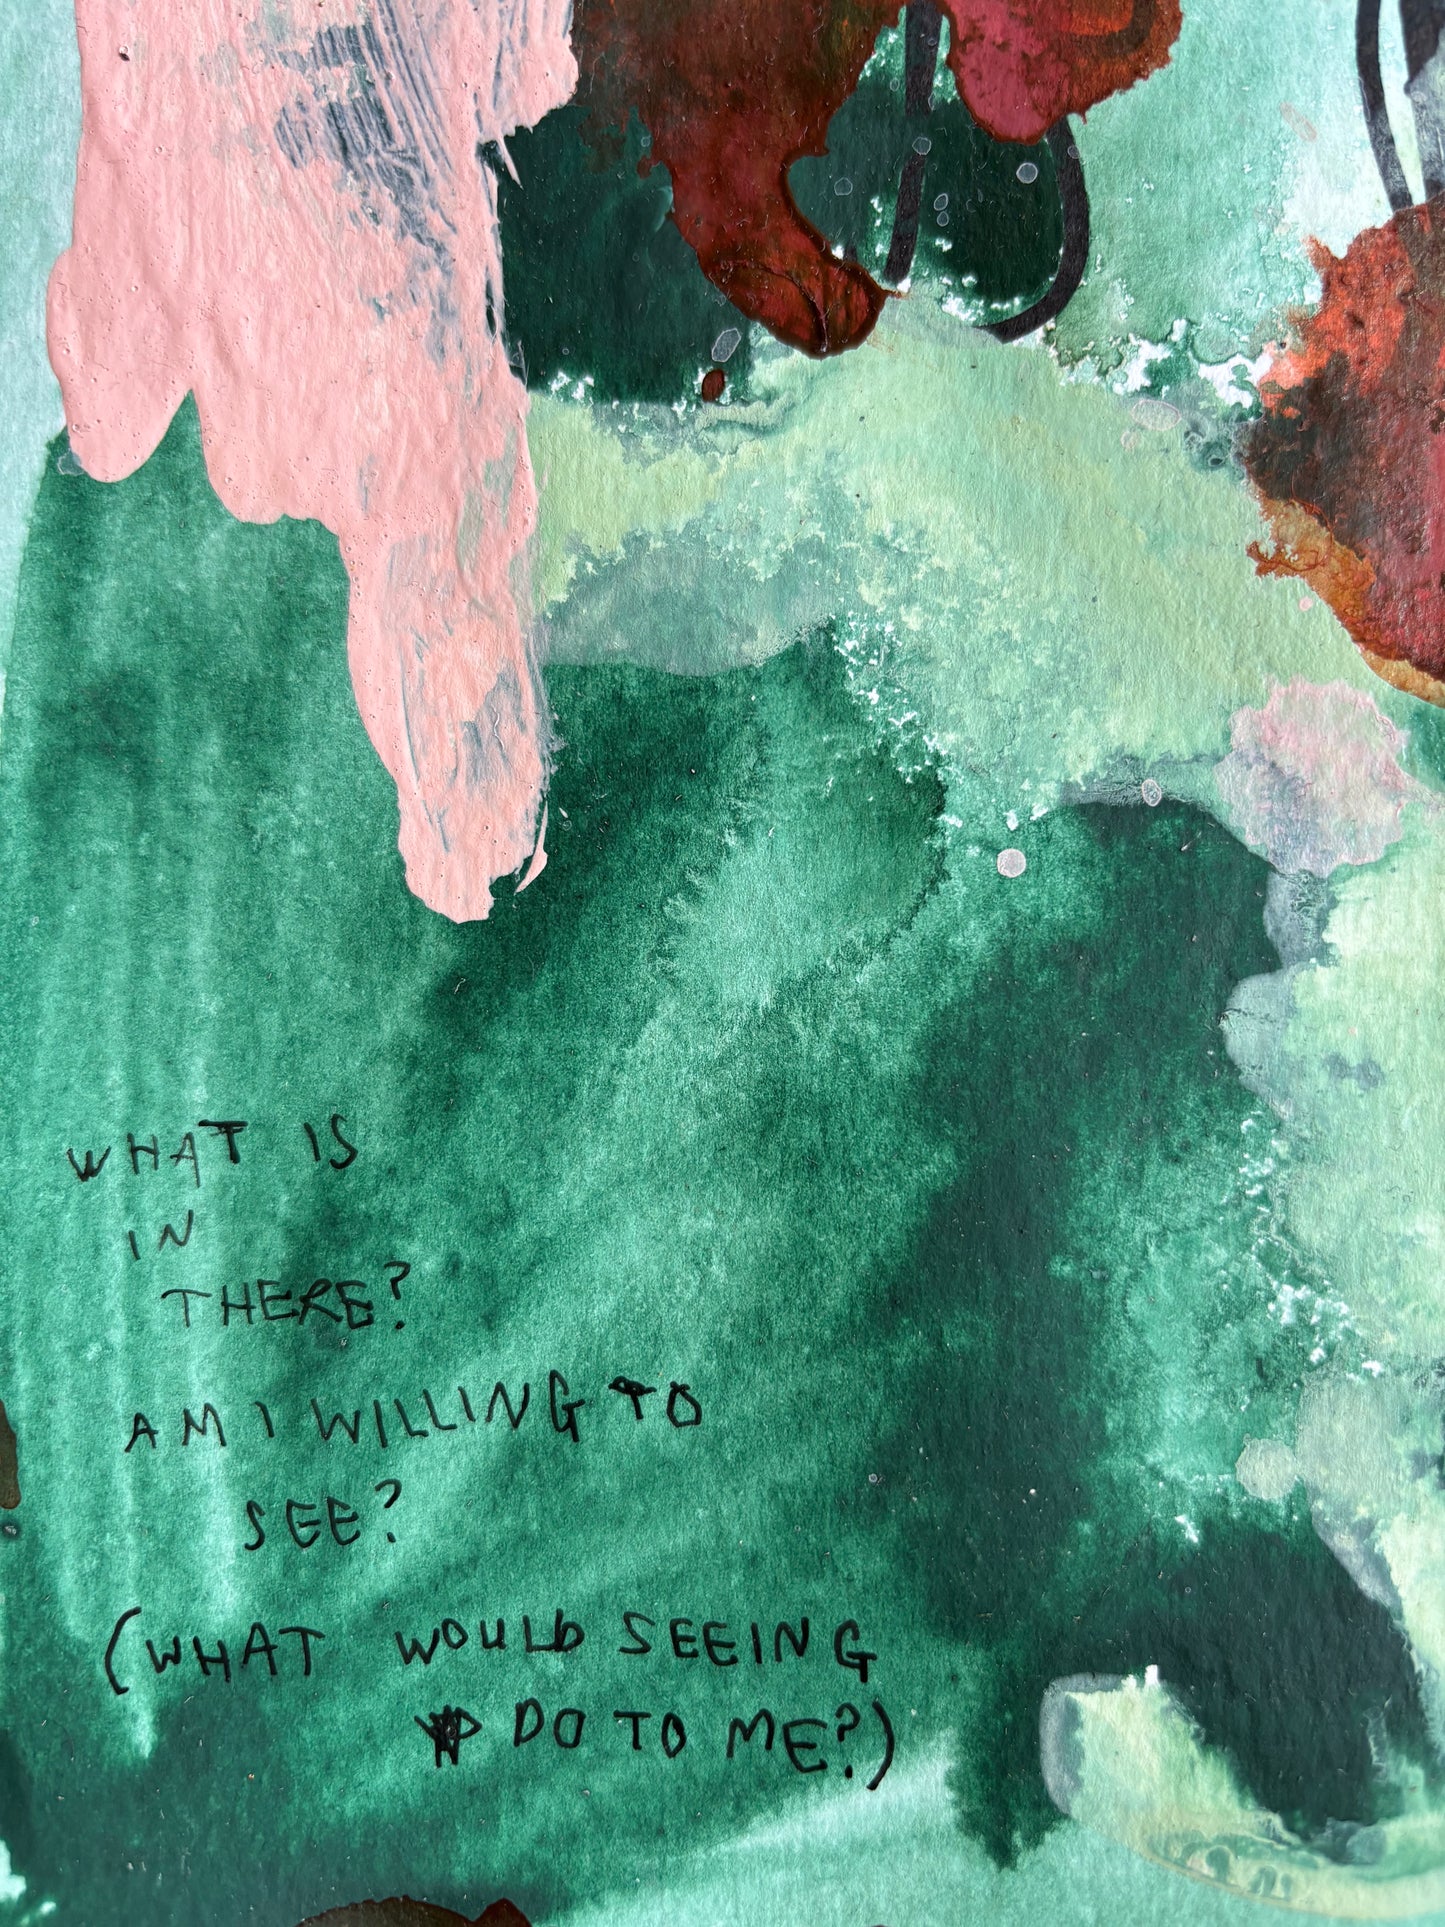 WHAT IS
IN
THERE?
AM I WILLING TO
SEE?
(WHAT WOULD SEEING
DO TO ME?)